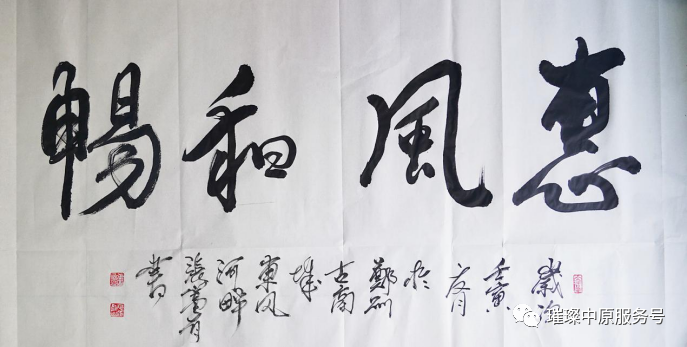 惠風和暢
歲次
壬寅
月
於
鄭州
古商
城
東风
河畔
張
書
璀璨中原服务号